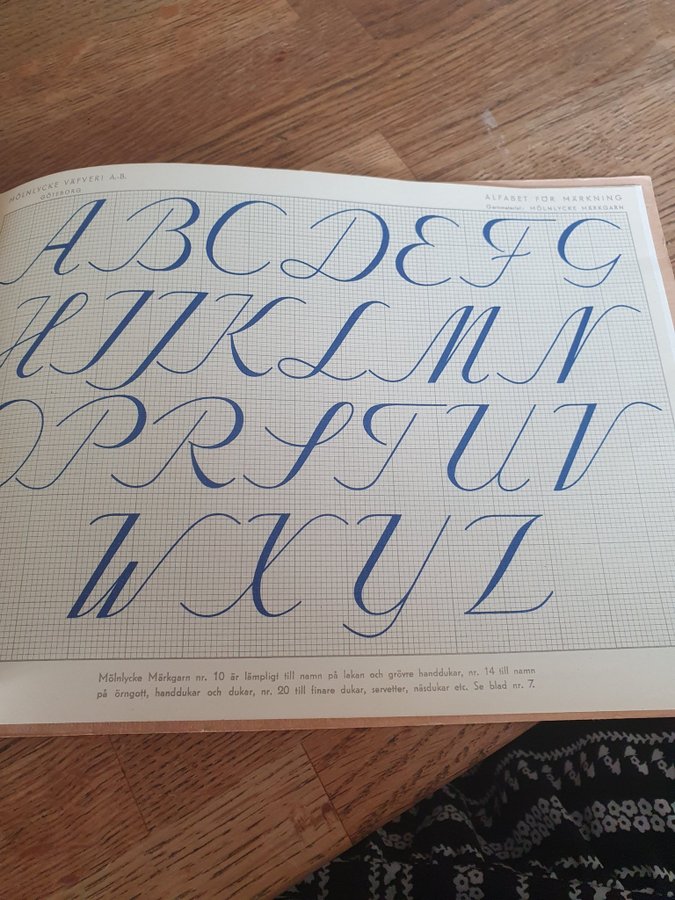 MÖLNLYCKE VÄFVERI A.-B.
GÖTEBORG
ALFABET FÖR MÄRKNING
Garnmaterial: MÖLNLYCKE MÄRKGARN
A B C D E F G
H I J K L M N
O P R S T U V
W X Y Z
Mölnlycke Märkgarn nr. 10 är lämpligt till namn på lakan och grövre handdukar, nr. 14 till namn
på örngott, handdukar och dukar, nr. 20 till finare dukar, servetter, näsdukar etc. Se blad nr. 7.